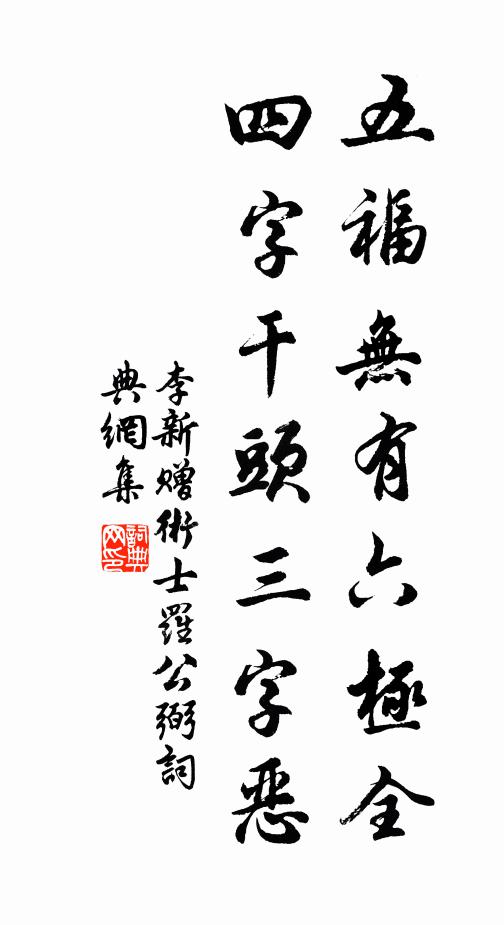 五福無有六極全
四字干頭三字惡
李新贈術士羅公弼詞
典網集
詞典網印